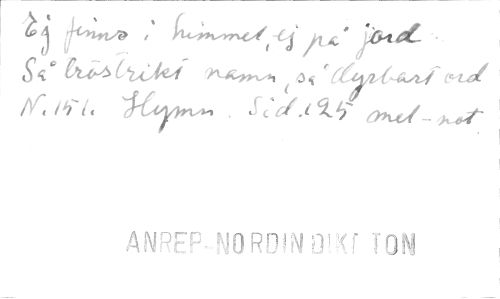 Ej finns i himmel, ej på jord
Så tröstrikt namn, så dyrbart ord
N. 151. Hymn. Sid. 125 mel-not.
ANREP-NORDIN DIKT TON